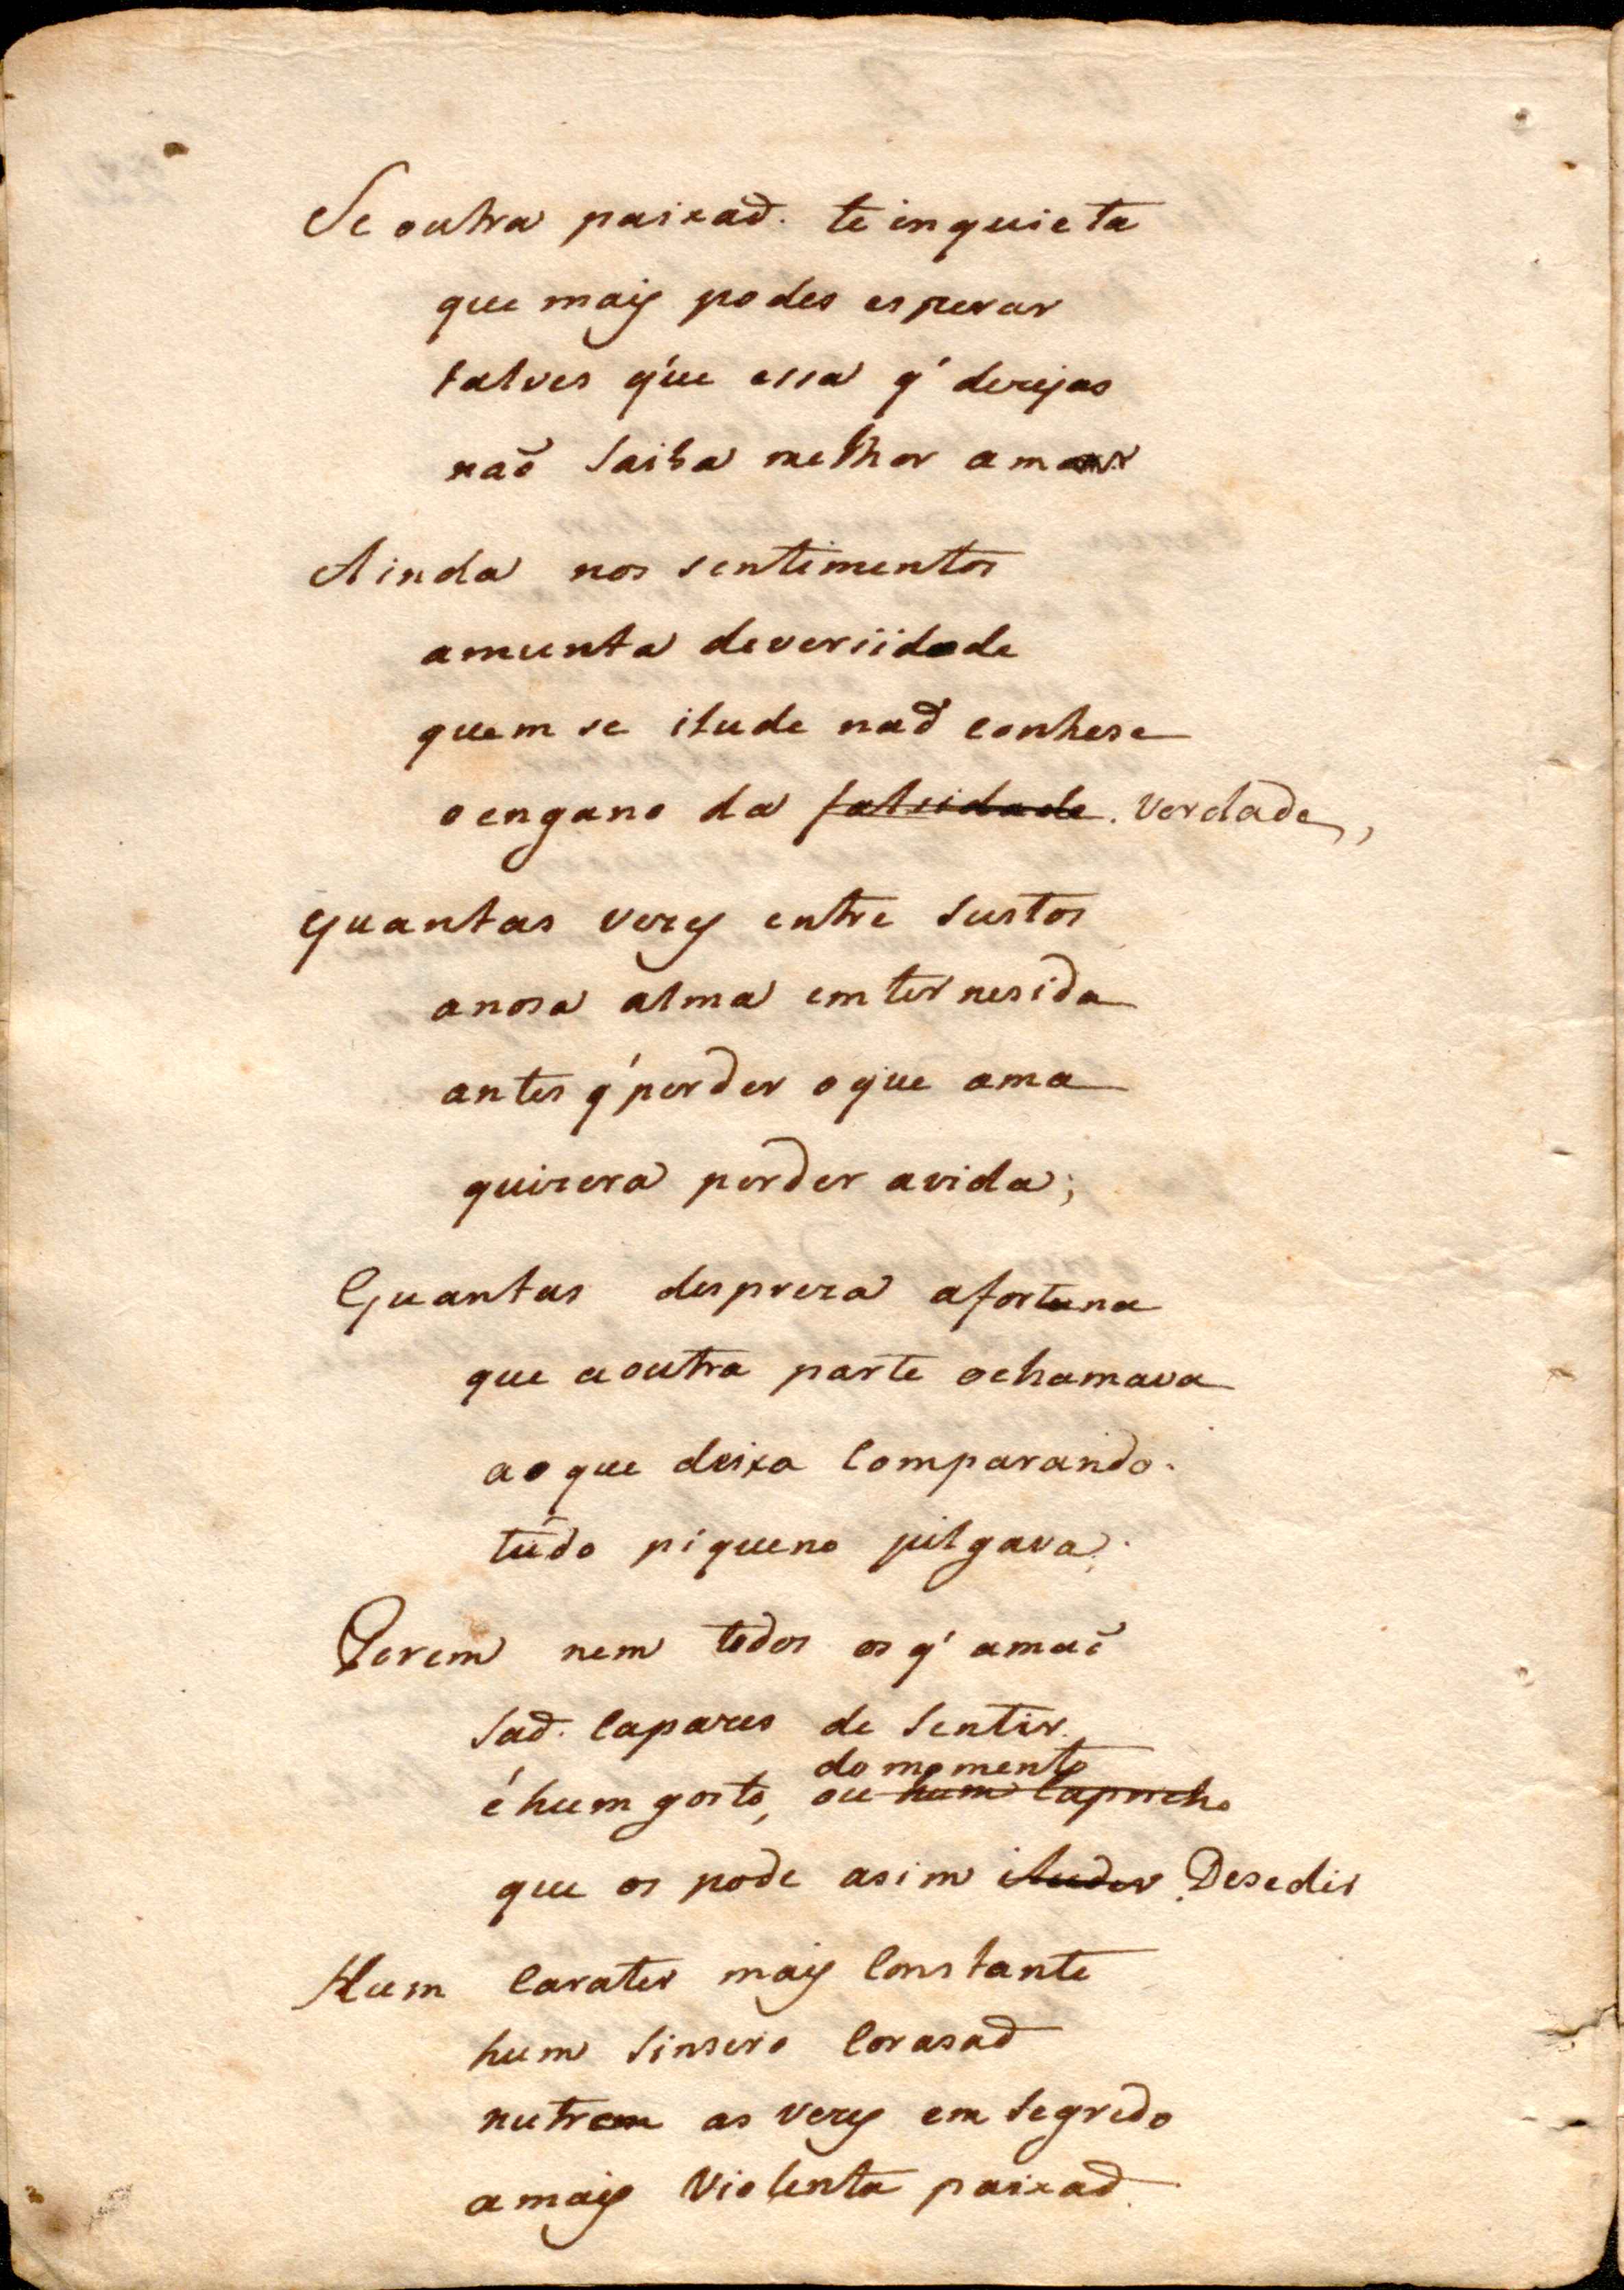 Se outra paixaõ. te inquieta
que mais podes esperar
talves que essa q' dezejas
naõ Saiba melhor amar
Ainda nos sentimentos
amunta deversiidade
quem se ilude naõ conhese
o engano da falsidade. Verdade,
quantas vezes entre Sustos
anosa alma emternesida
antes q' perder oque ama
quizera perder avida;
Quantas despreza afortuna
que a outra parte ochamava
ao que deixa Comparando.
tudo piqueno julgava;
Porem nem todos os q' amaõ
Saõ. Capazes de Sentir.
do momento
é hum gosto, ou hum Capricho
que os pode asim iludir. Desedir
Hum Carater mais Constante
hum Sinsero Corasaõ
nutrem as vezes em Segredo
amais Violenta paixaõ.